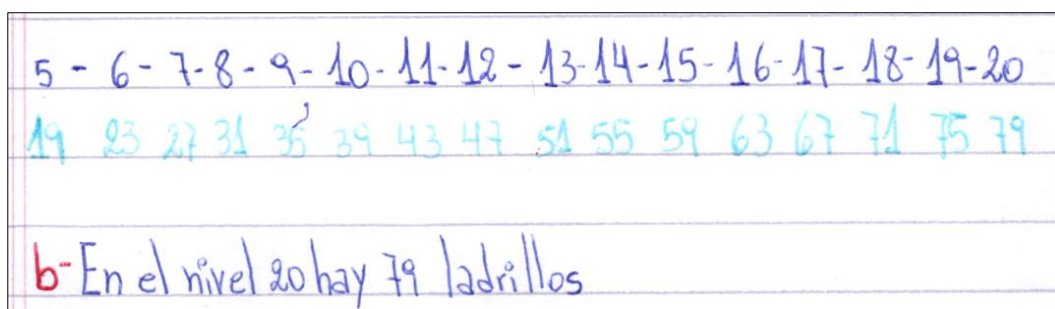 5 - 6 - 7 - 8 - 9 - 10 - 11 - 12 - 13 - 14 - 15 - 16 - 17 - 18 - 19 - 20
19 23 27 31 35 39 43 47 51 55 59 63 67 71 75 79
b- En el nivel 20 hay 79 ladrillos